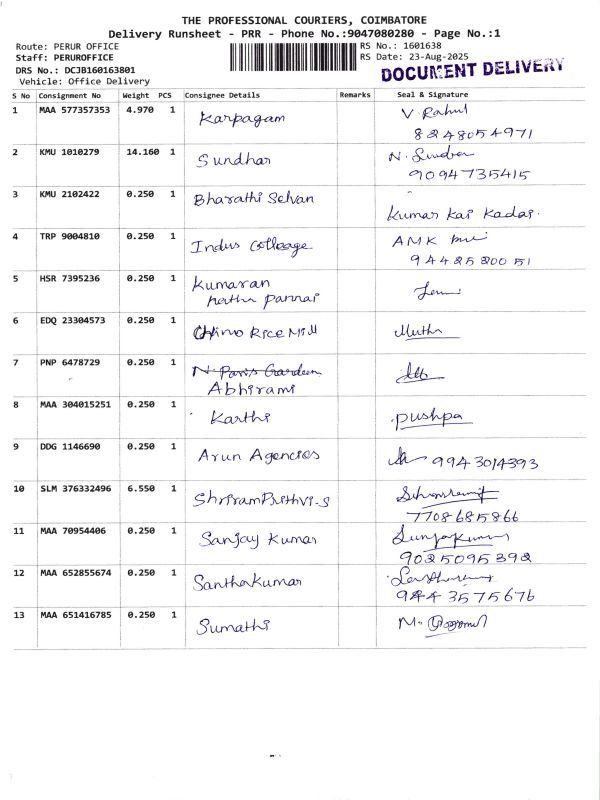 THE PROFESSIONAL COURIERS, COIMBATORE
Delivery Runsheet - PRR - Phone No.:9047080280 - Page No.:1
Route: PERUR OFFICE
RS No.: 1601638
Staff: PERUROFFICE
RS Date: 23-Aug-2025
DRS No.: DCJB160163801
DOCUMENT DELIVERY
Vehicle: Office Delivery
S No Consignment No Weight PCS Consignee Details Remarks Seal & Signature
1 MAA 577357353 4.970 1 Karpagam V. Rahul
8248054971
2 KMU 1010279 14.160 1 Sundhar
9094735415
3 KMU 2102422 0.250 1 Bharathi Selvan
Kumar Kai Kadai.
4 TRP 9004810 0.250 1 Indus Colleage AMK
9442520051
5 HSR 7395236 0.250 1 Kumaran
Pannai
6 EDQ 23304573 0.250 1 Rice Mill Muthu
7 PNP 6478729 0.250 1 N. Paris Garden
Abhirami
8 MAA 304015251 0.250 1 Karthi pushpa
9 DDG 1146690 0.250 1 Arun Agencies 9943014393
10 SLM 376332496 6.550 1 Shriram Prithvi.S
7708685866
11 MAA 70954406 0.250 1 Sanjay Kumar Sunjaykumar
9025095392
12 MAA 652855674 0.250 1 Santhakumar
9443575676
13 MAA 651416785 0.250 1 Sumathi M.